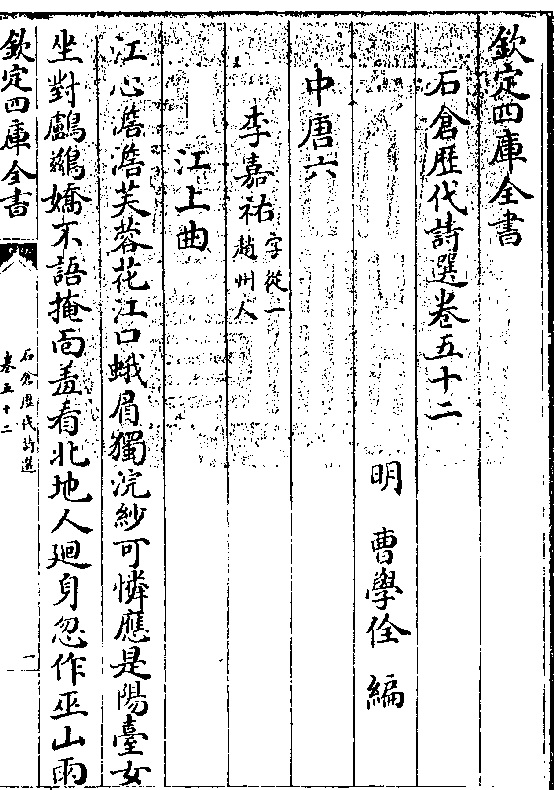 欽定四庫全書
石倉歴代詩選卷五十二
明 曹學佺 編
中唐六
李嘉祐字從一趙州人
江上曲
江心澹澹芙蓉花江口蛾眉獨浣紗可憐應是陽臺女
坐對鸕鷀嬌不語掩面羞看北地人廻身忽作巫山雨
欽定四庫全書
石倉歴代詩選
卷五十二
一